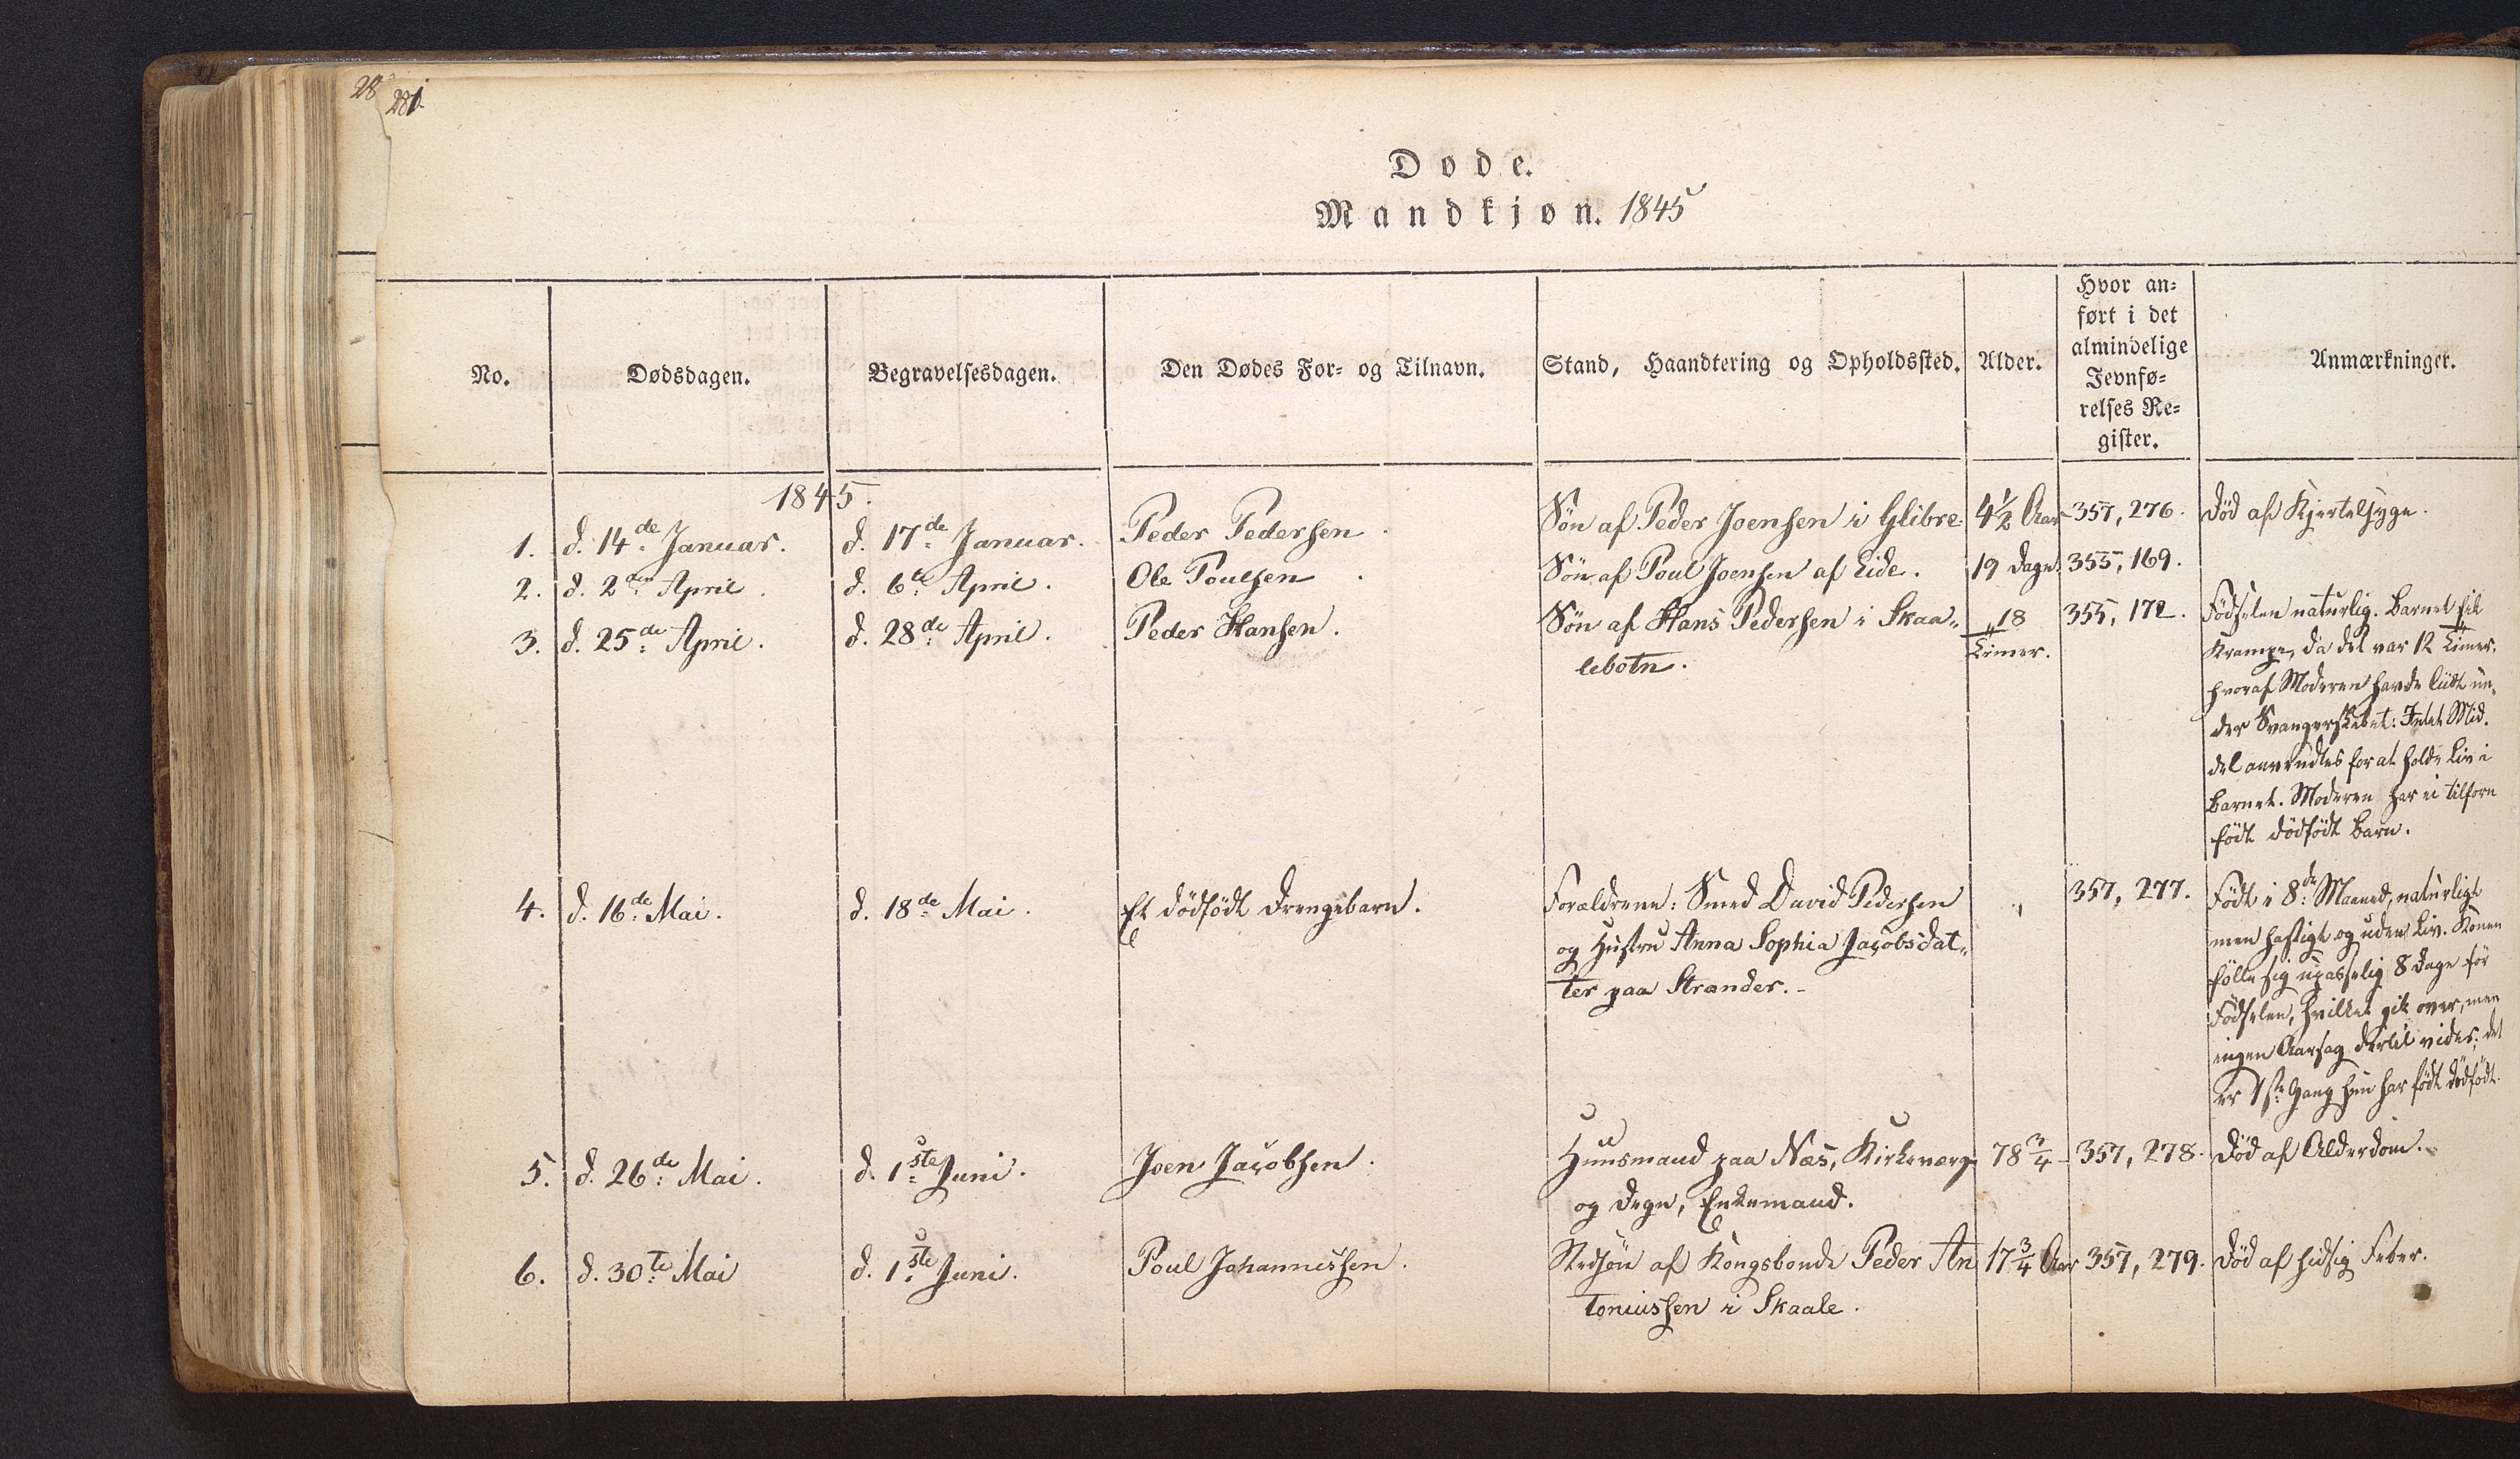 281.
Døde.
Mandkjøn. 1845
No.
Dødsdagen.
Begravelsesdagen.
Den Dødes For- og Tilnavn.
Stand, Haandtering og Opholdssted.
Alder.
Hvor an-
ført i det
almindelige
Jevnfø-
relses Re-
gister.
Anmærkninger.
1845.
1. d. 14de Januar. d. 17de Januar. Peder Pedersen. Søn af Peder Joensen i Glibre. 4½ Aar 357, 276. Død af Kjertelsyge.
2. d. 2den April. d. 6te April. Ole Poulsen. Søn af Poul Joensen af Eide. 19 Dage. 355, 169.
3. d. 25de April. d. 28de April. Peder Hansen. Søn af Hans Pedersen i Skaa- 18 355, 172. Fødselen naturlig. Barnet fik
lebotn. Timer. Krampe, da det var 12 Timer,
hvoraf Moderen havde liidt un-
der Svangerskabet: Intet Mid-
del anvendtes for at holde Liv i
Barnet. Moderen har ei tilforn
født dødfødt Barn.
4. d. 16de Mai. d. 18de Mai. Et dødfødt Drengebarn. Forældrene: Smed David Pedersen „ 357, 277. Født i 8de Maaned, naturligt
og Hustru Anna Sophia Jacobsdat- men hastigt og uden Liv. Konen
ter paa Strander. følte sig upasselig 8 Dage før
Fødselen, hvilket gik over, men
ingen Aarsag dertil vides; det
er 1ste Gang hun har født dødfødt.
5. d. 26de Mai. d. 1ste Juni. Joen Jacobsen. Huusmand paa Næs, Kirkeværge 78¾ 357, 278. Død af Alderdom.
og Degn, Enkemand.
6. d. 30te Mai d. 1ste Juni. Poul Johannessen. Stedsøn af Kongsbonde Peder An 17¾ Aar 357, 279. Død af hidsig Feber.
toniussen i Skaale.